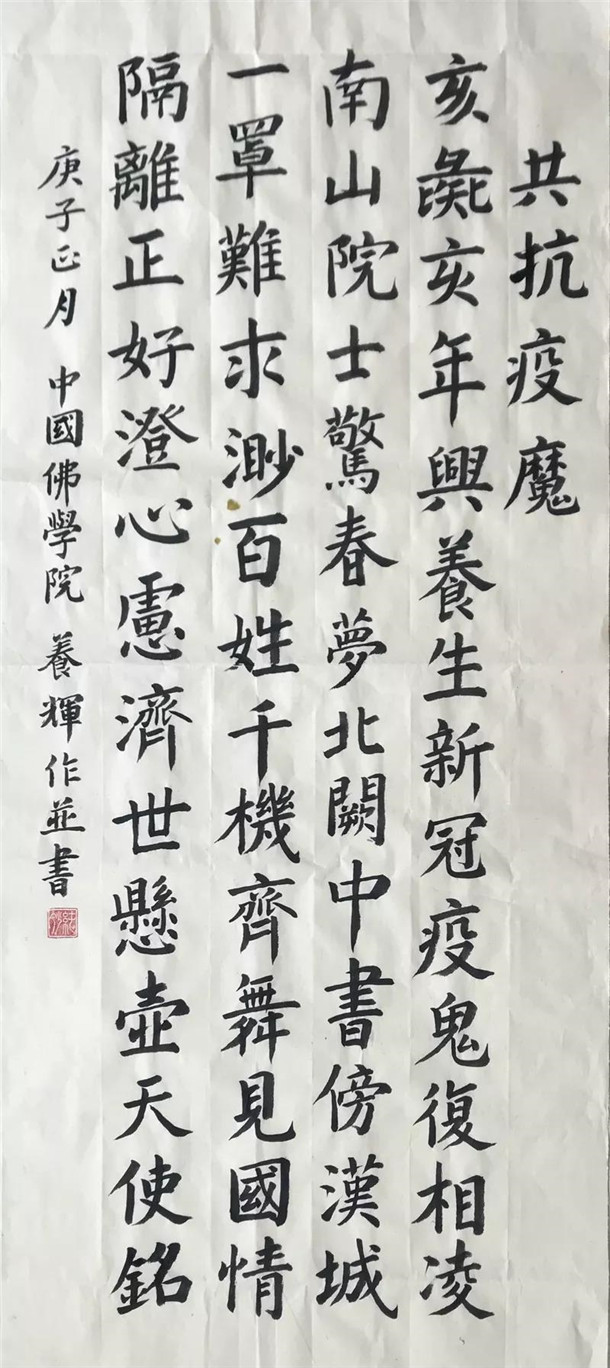 共抗疫魔
亥彘亥年興養生新冠疫鬼復相凌
南山院士驚春夢北闕中書傍漢城
一罩難求渺百姓千機齊舞見國情
隔離正好澄心慮濟世懸壺天使銘
庚子正月 中國佛學院 養輝作並書